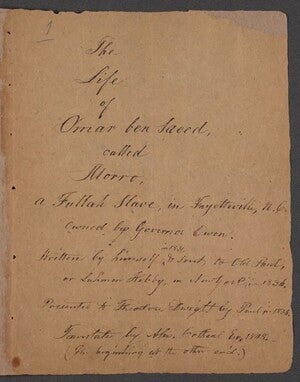 1
The
Life
of
Omar ben Saeed,
called
Morro,
a Fullah Slave, in Fayetteville, N.C.
owned by Governor Owen.
Written by himself in 1831. & sent to Old Paul,
or Lahmen Kebby, in New York, in 1836.
Presented to Theodore Dwight by Paul in 1836.
Translated by Alex. Cotheal Esq. 1848.
(The beginning at the other end.)